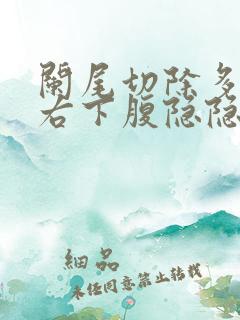 阑尾切除多
右下腹隐隐
細品
未任同意禁止转载